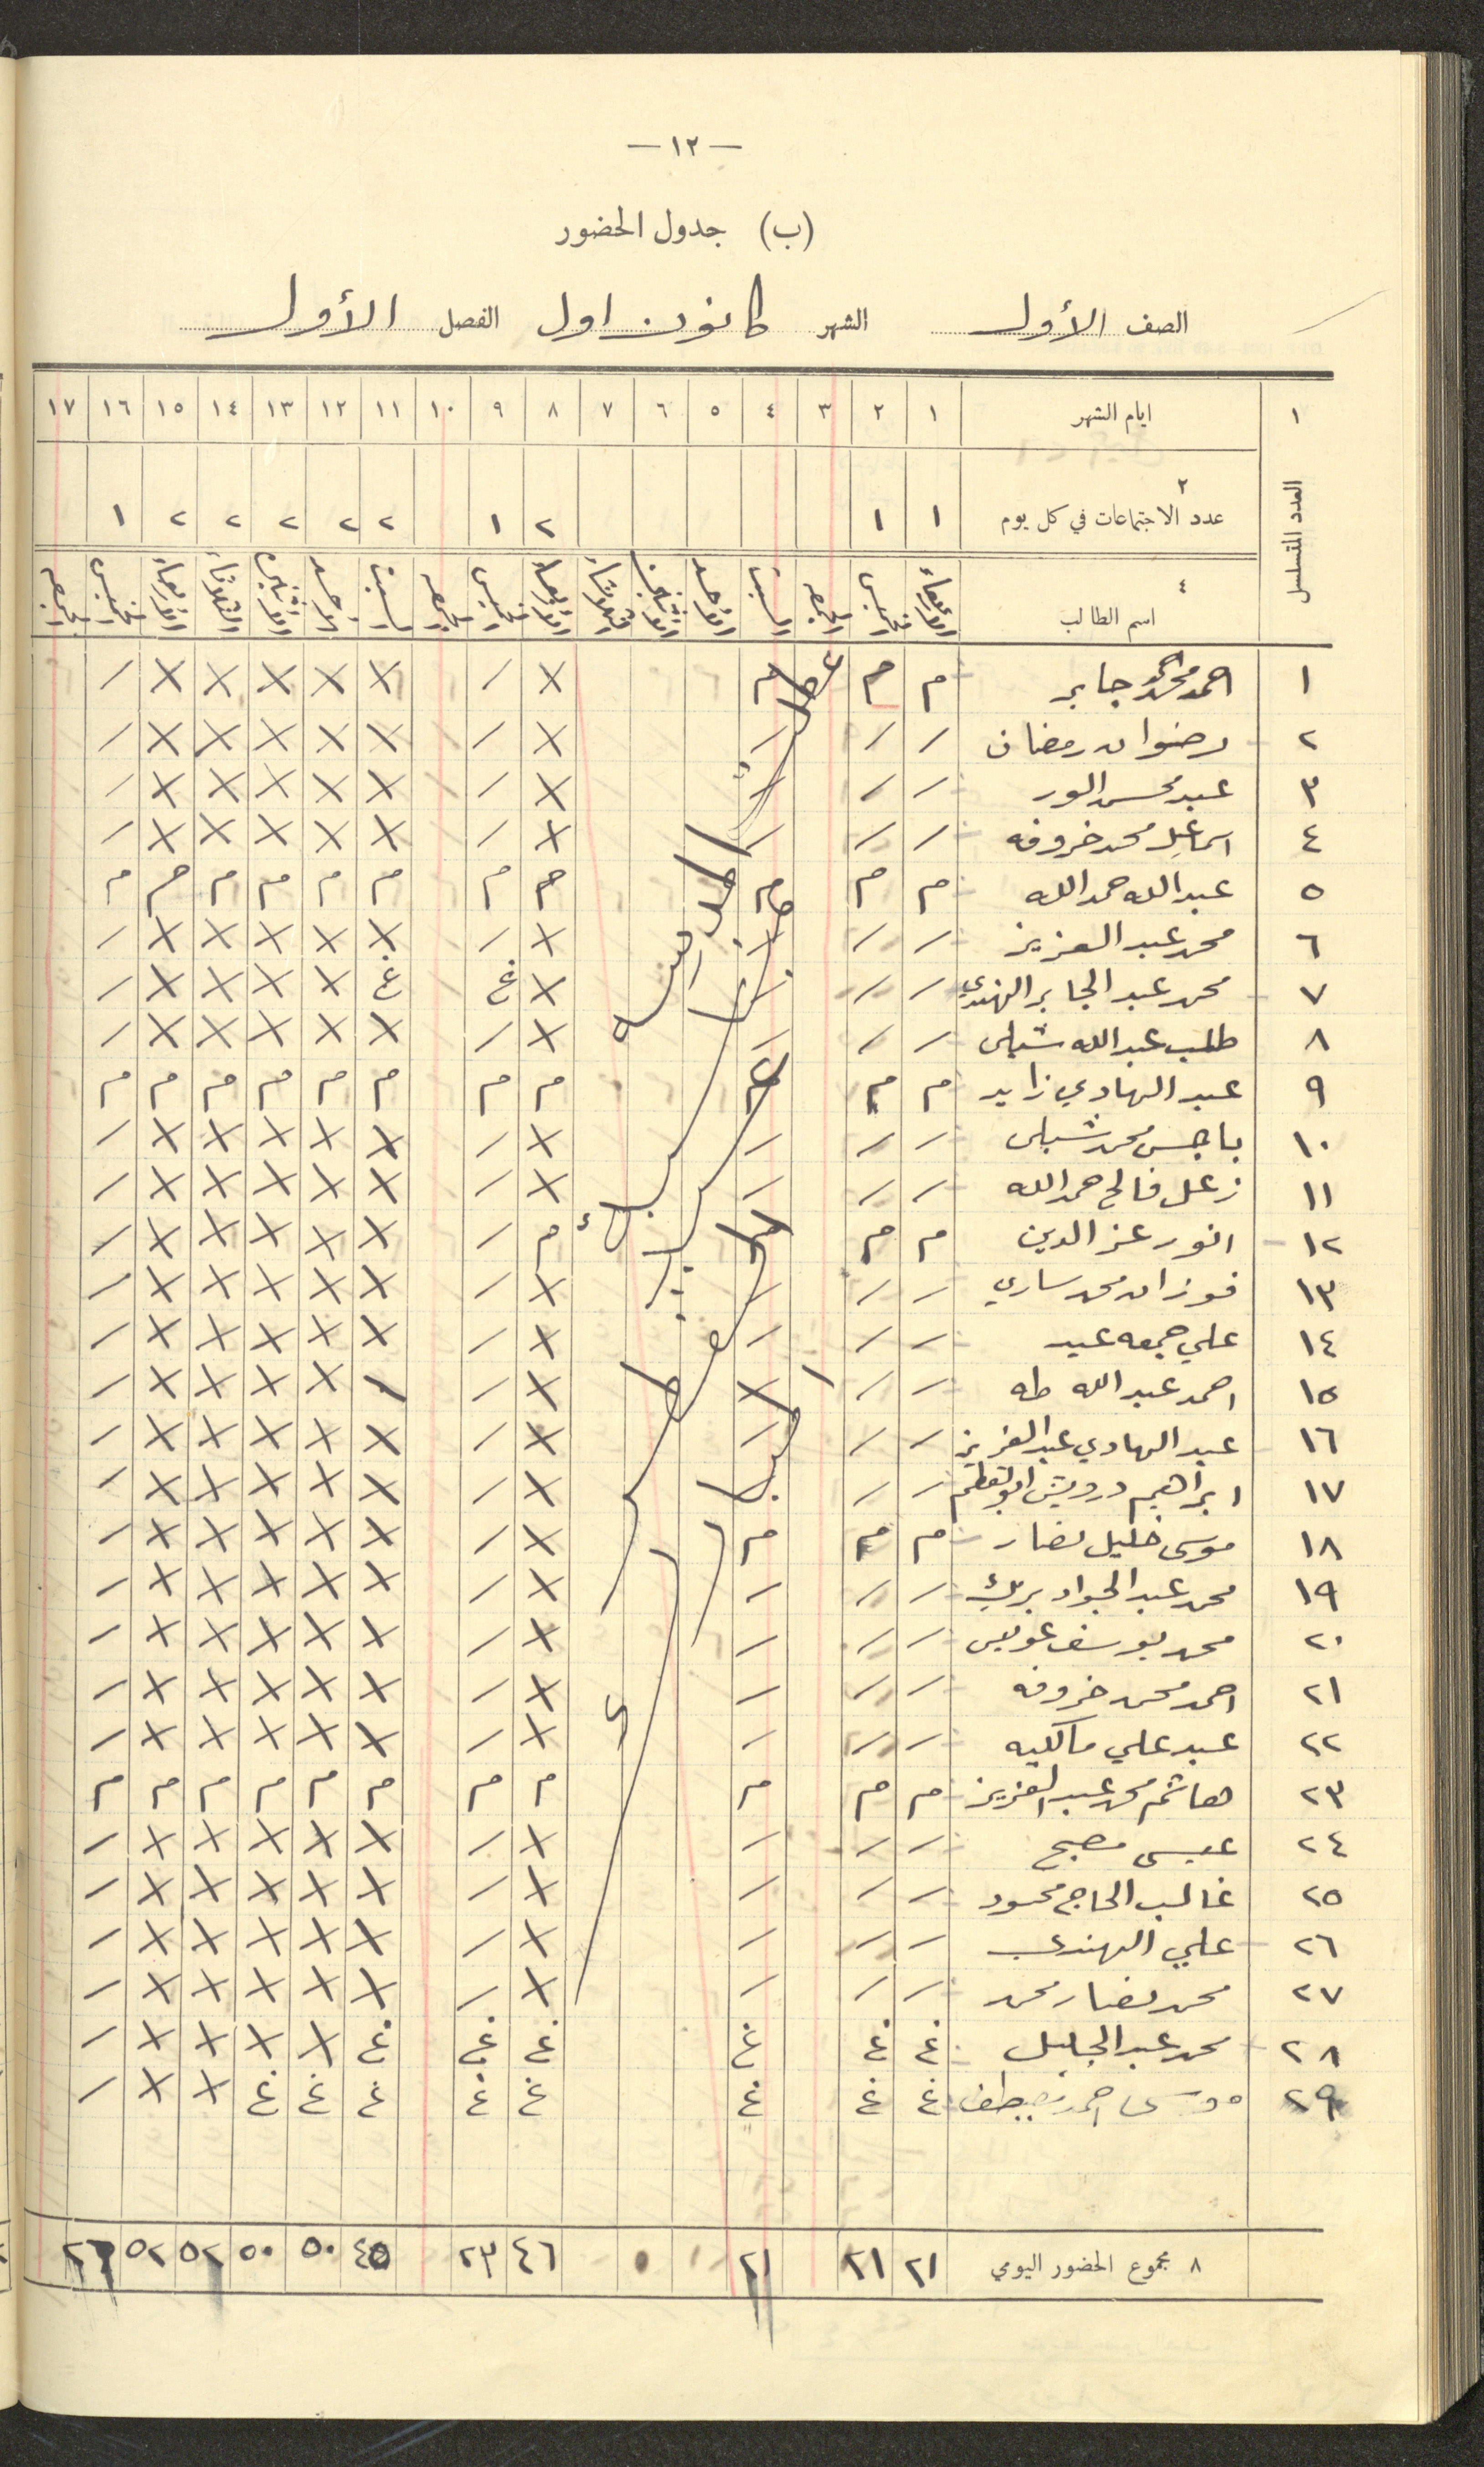 — ١٢ —
(ب) جدول الحضور
الصف الأول الشهر كانون اول الفصل الأول
١ ايام الشهر ١ ٢ ٣ ٤ ٥ ٦ ٧ ٨ ٩ ١٠ ١١ ١٢ ١٣ ١٤ ١٥ ١٦ ١٧
العدد المتسلسل
٢
عدد الاجتماعات في كل يوم ١ ١ ٢ ١ ٢ ٢ ٢ ٢ ٢ ١
٤
اسم الطالب الاربعاء الخميس الجمعه السبت الاحد الاثنين الثلاثاء الاربعاء الخميس الجمعه السبت الاحد الاثنين الثلاثاء الاربعاء الخميس الجمعه
١ احمد محمد جابر م م م × / × × × × × /
٢ رضوان رمضان / / / × / × × × × × /
٣ عبد محسن / / / × / × × × × × /
٤ اسماعيل محمد خروفه / / / × / × × × × × /
٥ عبدالله حمدالله م م م م م م م م م م م
٦ محمد عبد العزيز / / / × / × × × × × /
٧ محمد عبد الجابر الهندي / / / × غ غ × × × × /
٨ طلب عبدالله شبلي / / / × / × × × × × /
٩ عبد الهادي زايد م م م م م م م م م م م
١٠ باجس محمد شبلي / / / × / × × × × × /
١١ زعل فالح حمدالله / / / × / × × × × × /
١٢ انور عز الدين م م م م / × × × × × /
١٣ فوزان محمد ساري / / / × / × × × × × /
١٤ علي جمعه عيد / / / × / × × × × × /
١٥ احمد عبدالله طه / / × × / / × × × × /
١٦ عبد الهادي عبد العزيز / / / × / × × × × × /
١٧ ابراهيم درويش / / / × / × × × × × /
١٨ موسى خليل نصار م م م × / × × × × × /
١٩ محمد عبد الجواد / / / × / × × × × × /
٢٠ محمد يوسف عويس / / / × / × × × × × /
٢١ احمد محمد خروفه / / / × / × × × × × /
٢٢ عبد علي / / / × / × × × × × /
٢٣ هاشم محمد عبد العزيز م م م م م م م م م م م
٢٤ عيسى مصبح / / / × / × × × × × /
٢٥ غالب الحاج محمود / / / × / × × × × × /
٢٦ علي الهندي / / / × / × × × × × /
٢٧ محمد نصار محمد / / / × / × × × × × /
٢٨ محمد عبد الجليل غ غ غ غ غ غ × × × × /
٢٩ موسى احمد غ غ غ غ غ غ غ غ × × /
عطلت المدرسه
بسبب
٨ مجموع الحضور اليومي ٢١ ٢١ ٢١ ٤٦ ٢٣ ٤٥ ٥٠ ٥٠ ٥٢ ٥٢ ٢٦